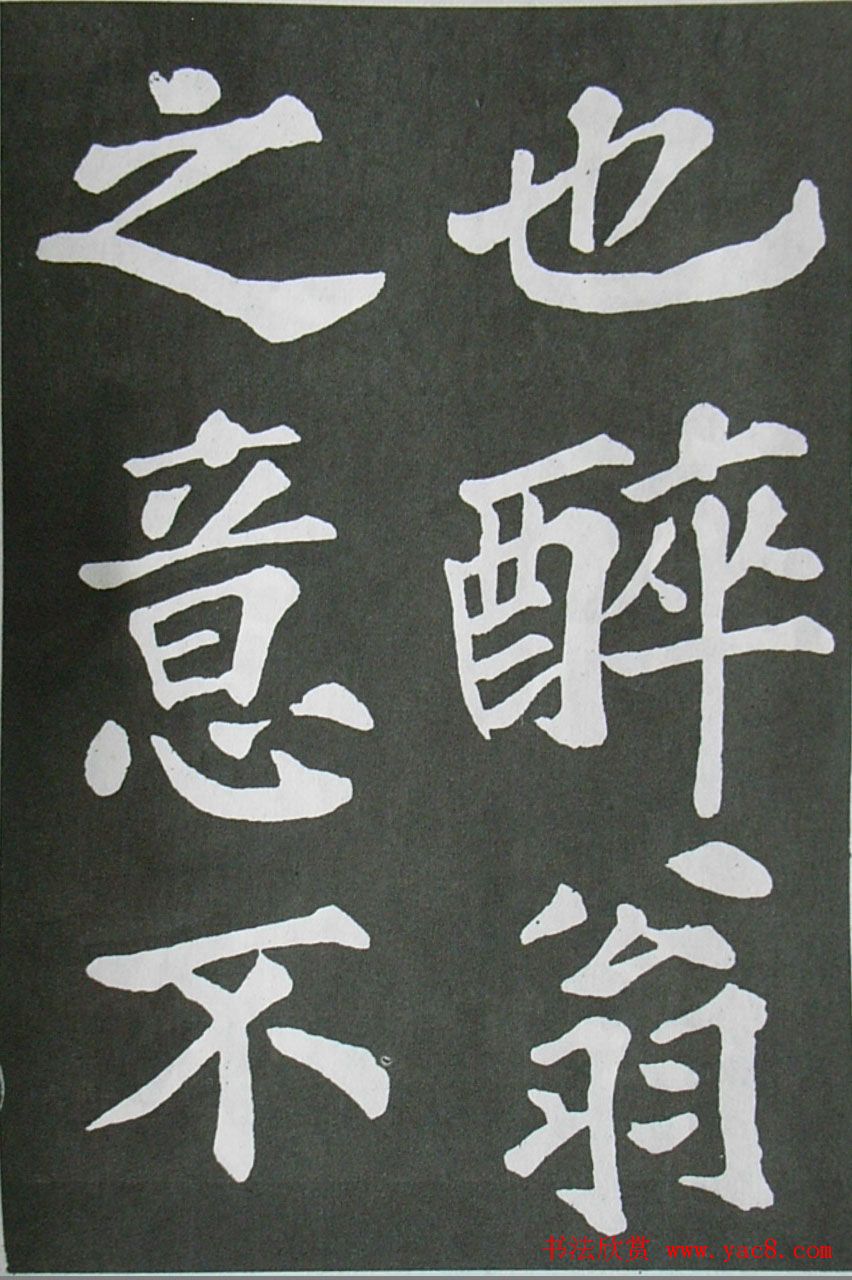 也醉翁
之意不
书法欣赏 www.yac8.com